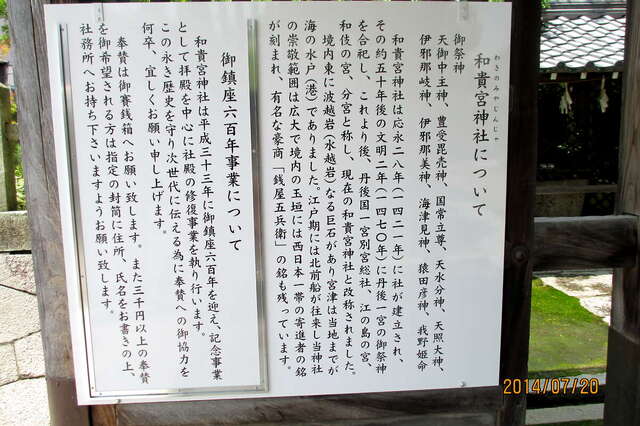 わきのみやじんじゃ
和貴宮神社について
御祭神
天御中主神、豊受毘売神、国常立尊、天水分神、天照大神、
伊邪那岐神、伊邪那美神、海津見神、猿田彦神、我野姫命
和貴宮神社は応永二八年(一四二一年)に社が建立され、
その約五十年後の文明二年(一四七〇年)に丹後一宮の御祭神
を合祀し、これより後、丹後国一宮別宮総社、江の島の宮、
和伎の宮、分宮と称し、現在の和貴宮神社と改称されました。
境内東に波越岩(水越岩)なる巨石があり宮津は当地までが
海の水戸(港)でありました。江戸期には北前船が往来し当神社
の崇敬範囲は広大で境内の玉垣には西日本一帯の寄進者の銘
が刻まれ、有名な豪商「銭屋五兵衛」の銘も残っています。
御鎮座六百年事業について
和貴宮神社は平成三十三年に御鎮座六百年を迎え、記念事業
として拝殿を中心に社殿の修復事業を執り行います。
この永き歴史を守り次世代に伝える為に奉賛への御協力を
何卒、宜しくお願い申し上げます。
奉賛は御賽銭箱へお願い致します。また三千円以上の奉賛
を御希望される方は指定の封筒に住所、氏名をお書きの上、
社務所へお持ち下さいますようお願い致します。
2014/07/20